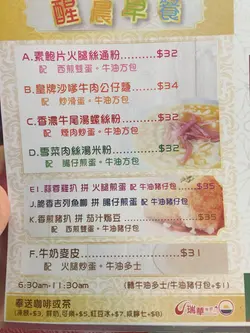 醒晨早餐
A.素鮑片火腿絲通粉 $32
配 西煎雙蛋·牛油方包
B.皇牌沙嗲牛肉公仔麵 $34
配 炒滑蛋·牛油方包
C.香濃牛尾湯螺絲粉 $32
配 煙肉炒蛋·牛油方包
D.雪菜肉絲湯米粉 $32
配 腸仔煎蛋·牛油方包
E1.蒜香雞扒 拼 火腿煎蛋 配 牛油豬仔包 $35
J.脆香吉列魚柳 拼 腸仔煎蛋 配 牛油豬仔包 $35
K.香煎豬扒 拼 茄汁焗豆 配 牛油豬仔包 $35
F.牛奶麥皮 $31
配 火腿炒蛋·牛油多士
6:30am-11:30am
(轉牛油多士/牛油豬仔包+$1)
奉送咖啡或茶
瑞華